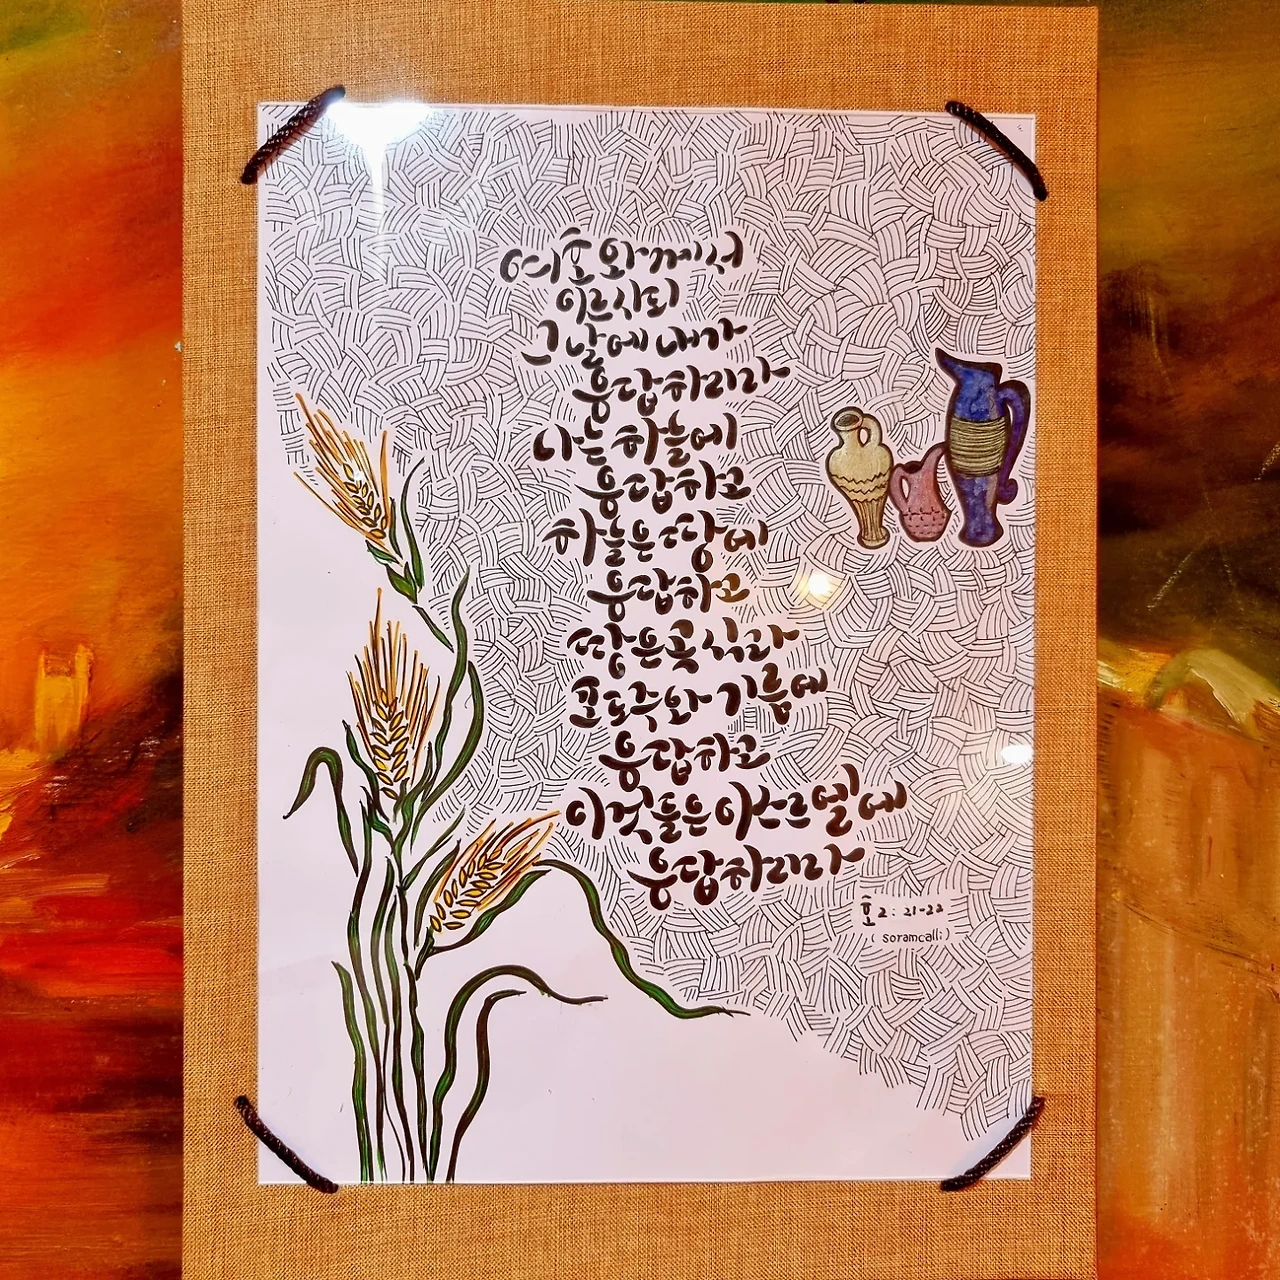 여호와께서
이르시되
그날에 내가
응답하리라
나는 하늘에
응답하고
하늘은 땅에
응답하고
땅은 곡식과
포도주와 기름에
응답하고
이것들은 이스르엘에
응답하리라
호 2:21-22
(soramcalli)